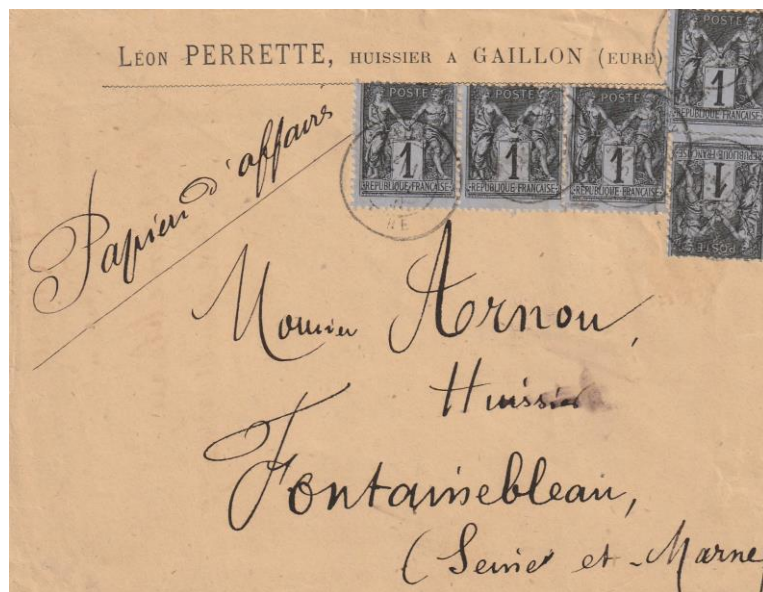 LÉON PERRETTE, HUISSIER A GAILLON (EURE)
POSTE
1
REPUBLIQUE FRANÇAISE
POSTE
1
REPUBLIQUE FRANÇAISE
POSTE
1
REPUBLIQUE FRANÇAISE
POSTE
1
REPUBLIQUE FRANÇAISE
POSTE
1
Papiers d'affaires
Monsieur Arnou,
Huissier
Fontainebleau,
(Seine et-Marne